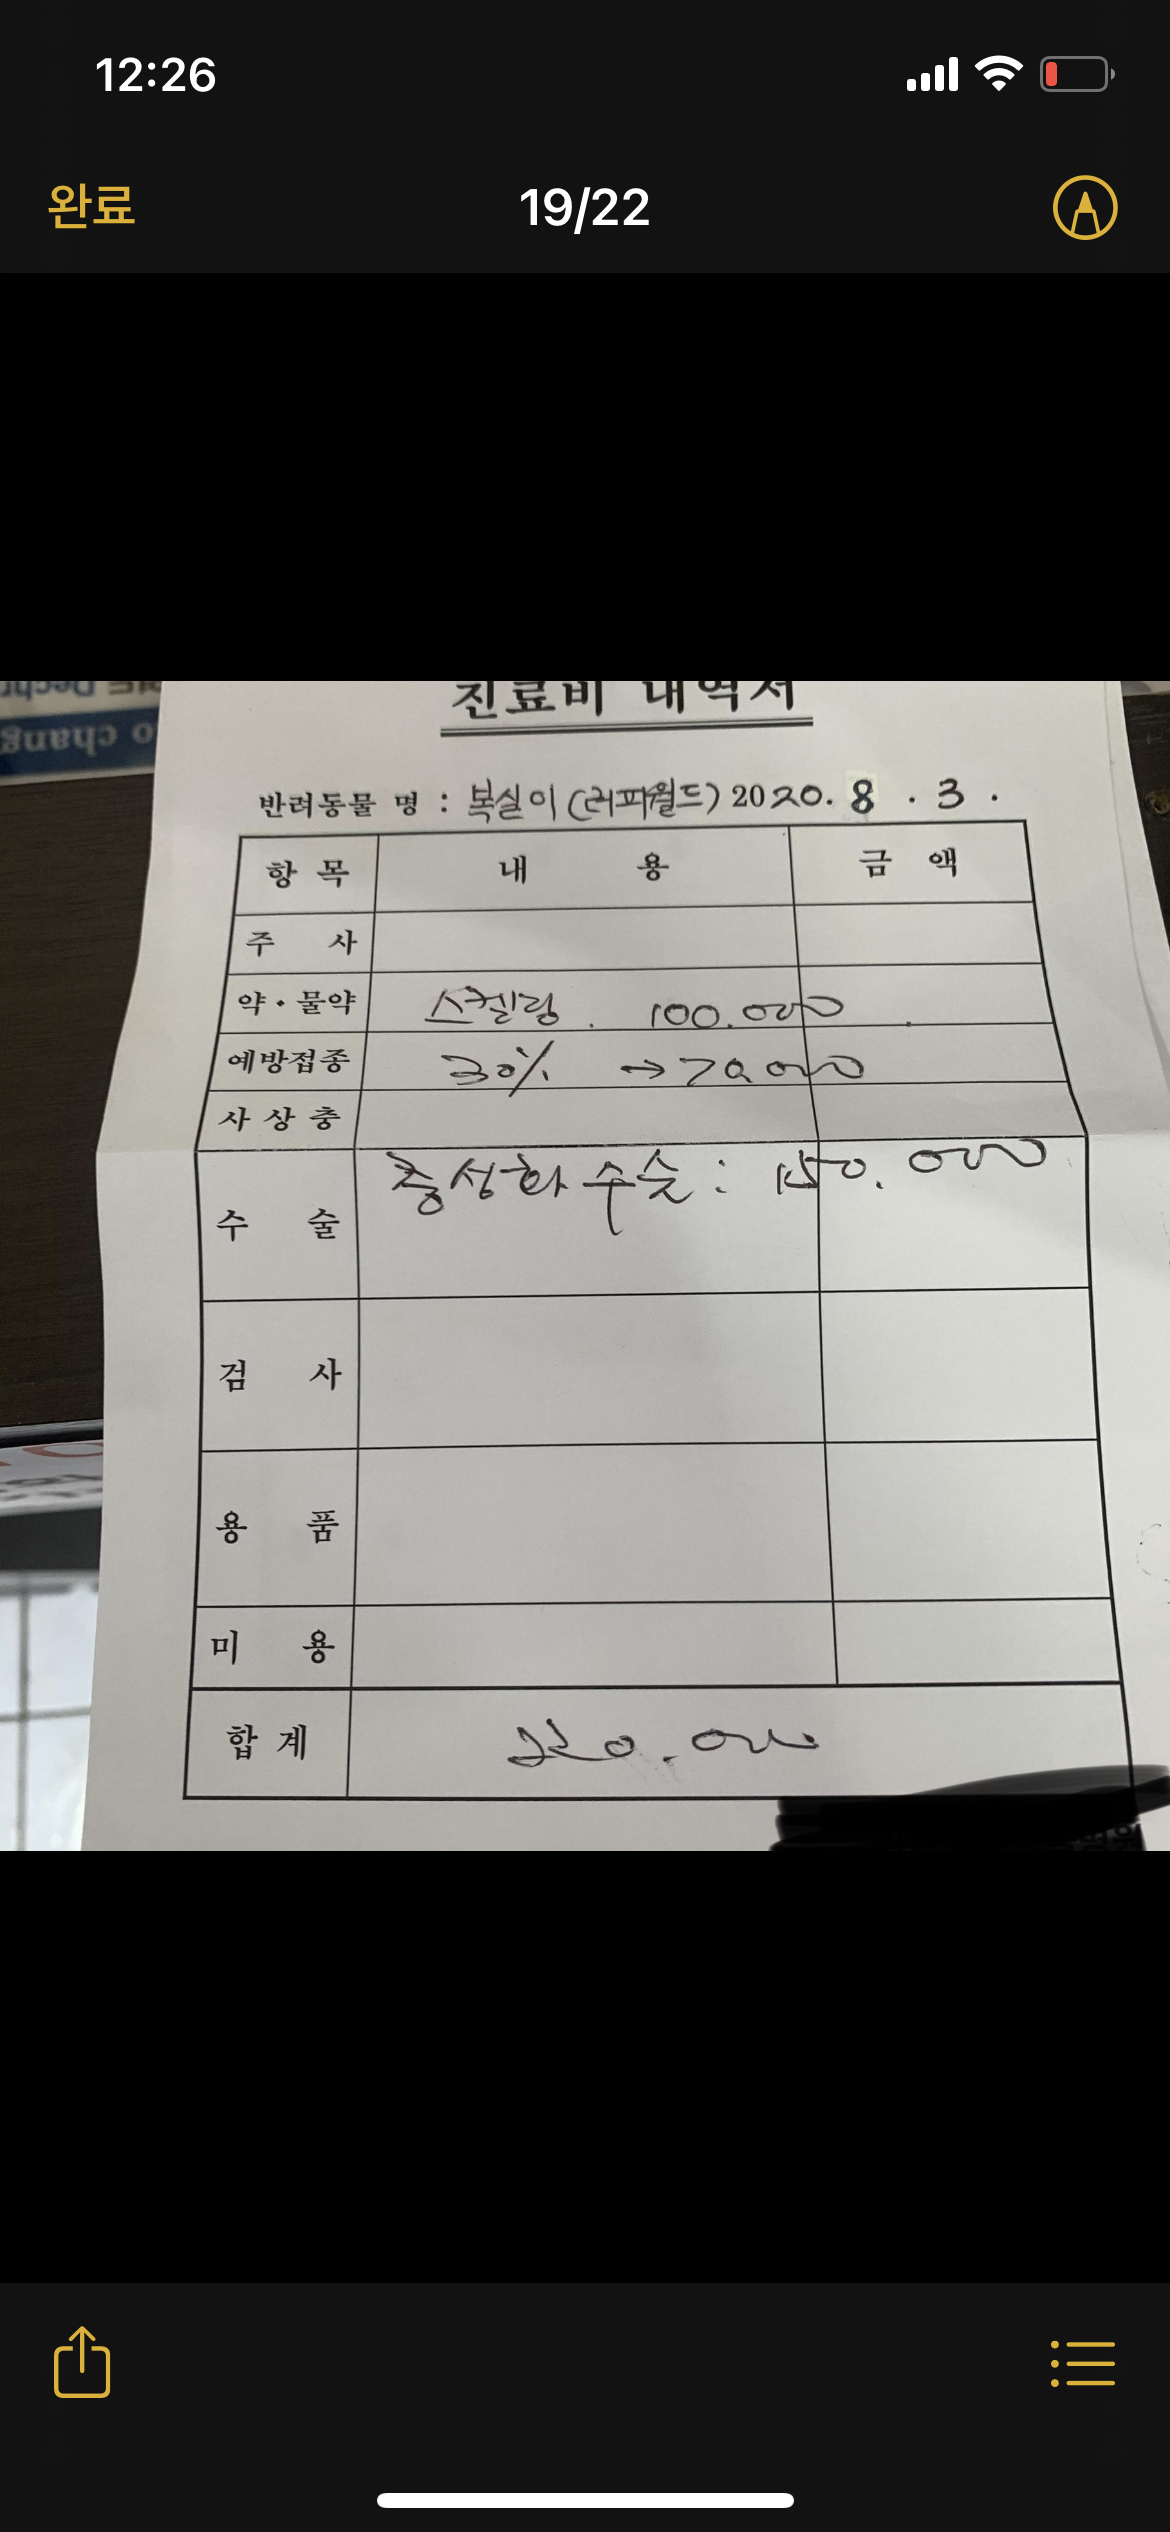 12:26
완료 19/22
진료비 내역서
o chang
반려동물 명 : 복실이 (러피월드) 2020. 8 . 3 .
항 목 내 용 금 액
주 사
약 · 물약 스켈링 . 100.000 .
예방접종 30% → 70.000
사 상 충
수 술 중성화 수술 : 150.000
검 사
용 품
미 용
합 계 220.000